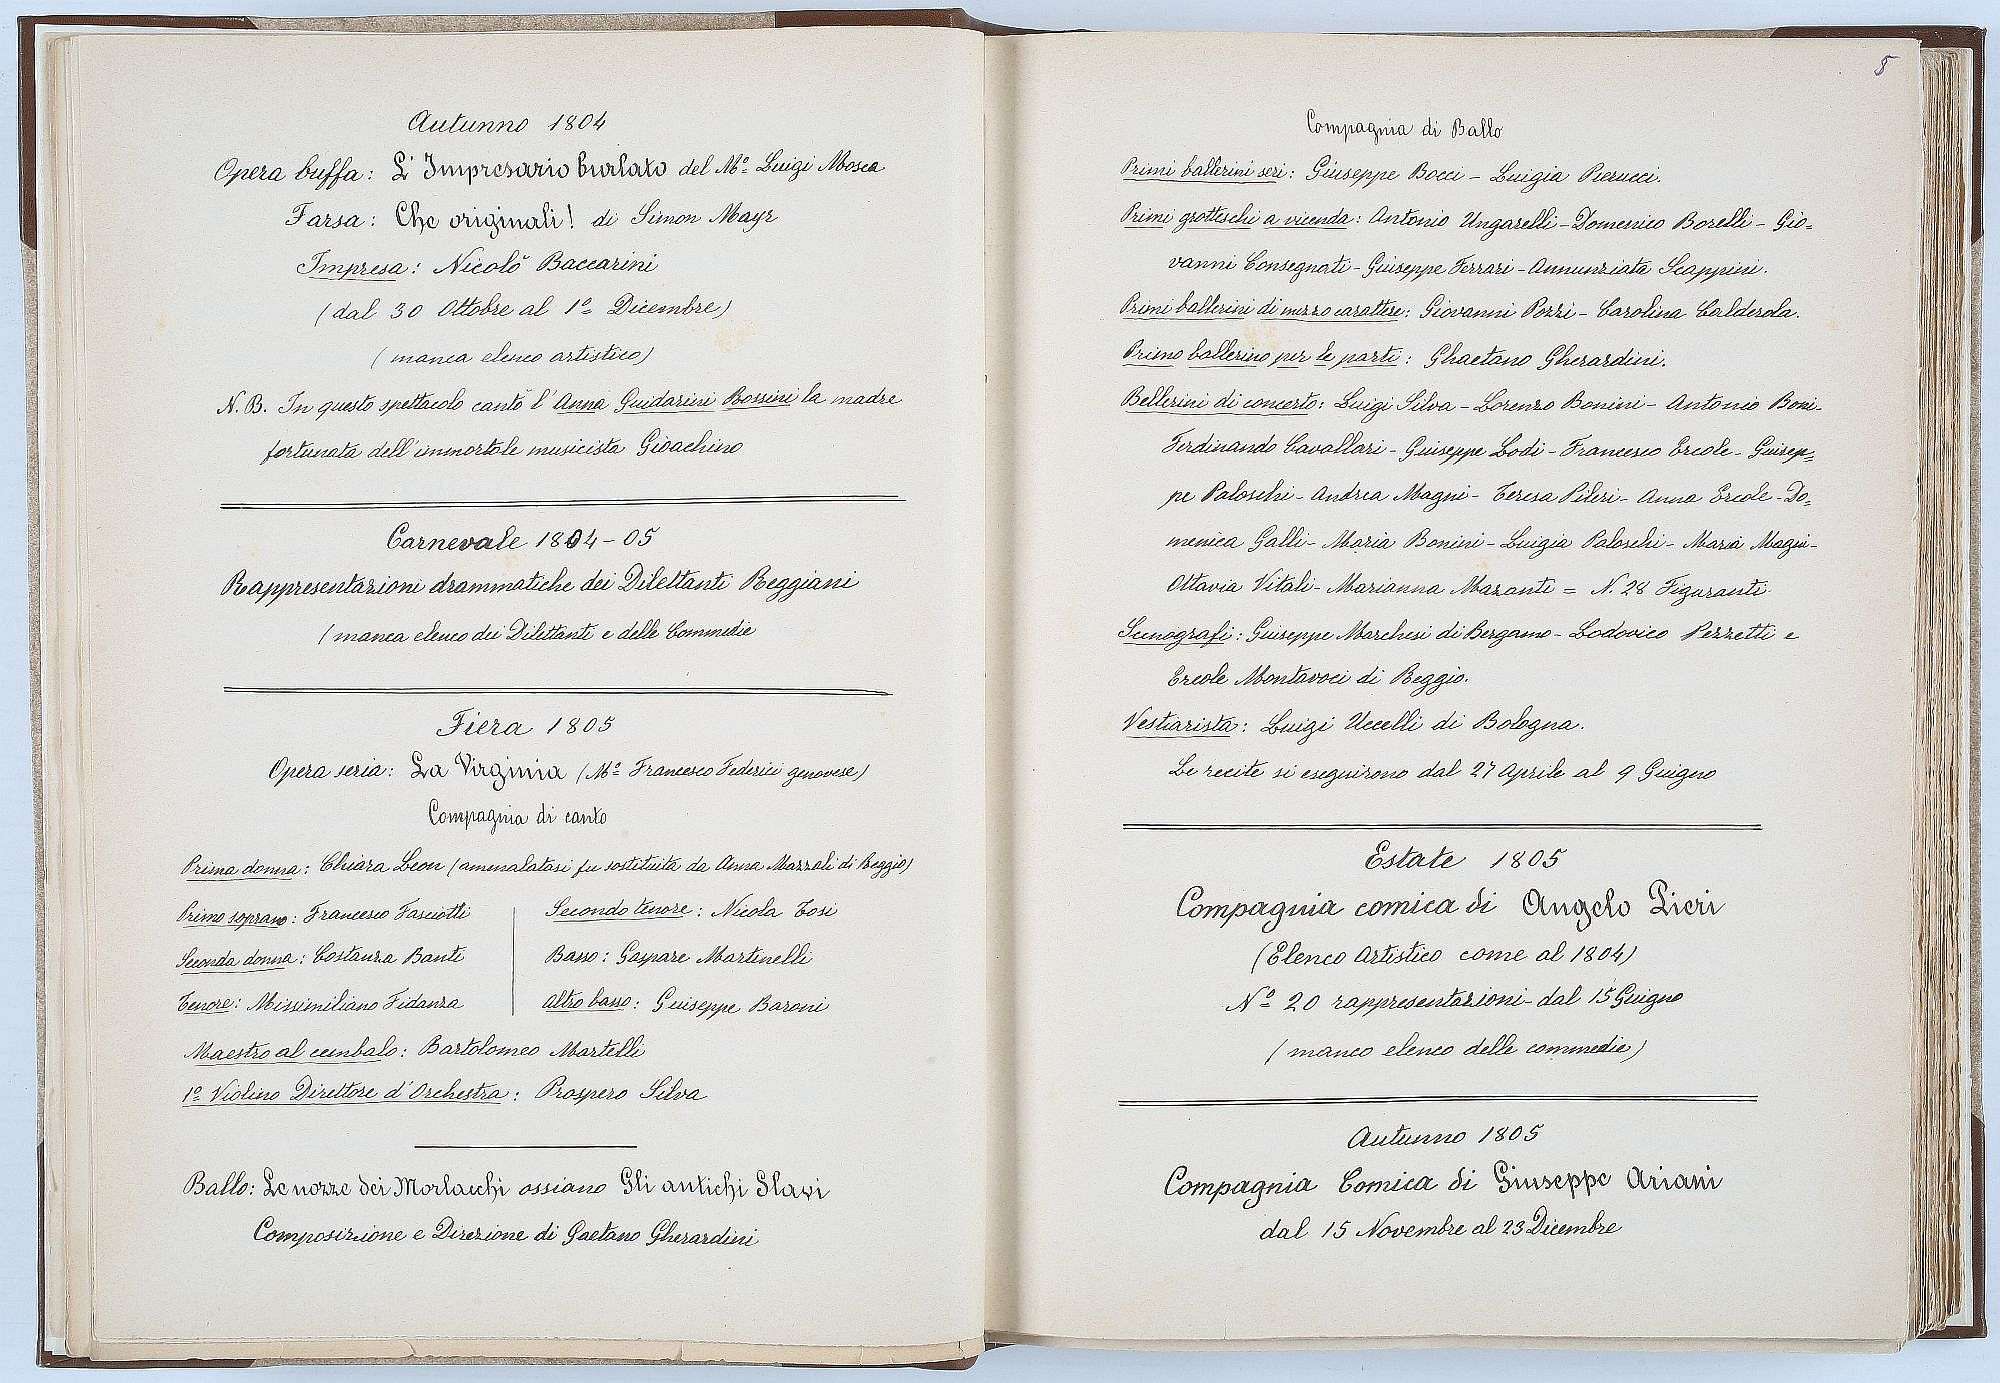 Autunno 1804
Opera buffa: L'Impresario burlato del Mº Luigi Mosca
Farsa: Che originali! di Simon Mayr
Impresa: Nicolò Baccarini
(dal 30 Ottobre al 1º Dicembre)
(manca elenco artistico)
N.B. In questo spettacolo cantò l'Anna Guidarini Rossini la madre
fortunata dell'immortale musicista Gioachino
Carnevale 1804-05
Rappresentazioni drammatiche dei Dilettanti Reggiani
(manca elenco dei Dilettanti e delle Commedie
Fiera 1805
Opera seria: La Virginia (Mº Francesco Federici genovese)
Compagnia di canto
Prima donna: Chiara Leon (ammalatasi fu sostituita da Anna Mazzali di Reggio)
Primo soprano: Francesco Fasciotti
Seconda donna: Costanza Banti
Tenore: Missimiliano Fidanza
Secondo tenore: Nicola Tosi
Basso: Gaspare Martinelli
Altro basso: Giuseppe Baroni
Maestro al cembalo: Bartolomeo Martelli
1º Violino Direttore d'Orchestra: Prospero Silva
Ballo: Le nozze dei Morlacchi ossiano Gli antichi Slavi
Composizione e Direzione di Gaetano Gherardini
8
Compagnia di Ballo
Primi ballerini seri: Giuseppe Bocci - Luigia Pierucci.
Primi grotteschi a vicenda: Antonio Ungarelli - Domenico Borelli - Gio=
vanni Consegnati - Giuseppe Ferrari - Annunziata Scappini.
Primi ballerini di mezzo carattere: Giovanni Pozzi - Carolina Calderola.
Primo ballerino per le parti: Ghaetano Gherardini.
Bellerini di concerto: Luigi Silva - Lorenzo Bonini - Antonio Boni-
Ferdinando Cavallari - Giuseppe Lodi - Francesco Ercole - Guisep=
pe Paloschi - Andrea Magni - Teresa Pileri - Anna Ercole - Do=
menica Galli - Maria Bonini - Luigia Paloschi - Maria Magni -
Ottavia Vitali - Marianna Mazanti = N. 28 Figuranti.
Scenografi: Giuseppe Marchesi di Bergamo - Lodovico Pezzetti e
Ercole Montavoci di Reggio.
Vestiarista: Luigi Uccelli di Bologna.
Le recite si eseguirono dal 27 Aprile al 9 Guigno
Estate 1805
Compagnia comica di Angelo Pieri
(Elenco Artistico come al 1804)
Nº 20 rappresentazioni - dal 15 Guigno
(manco elenco delle commedie)
Autunno 1805
Compagnia Comica di Giuseppe Ariani
dal 15 Novembre al 23 Dicembre